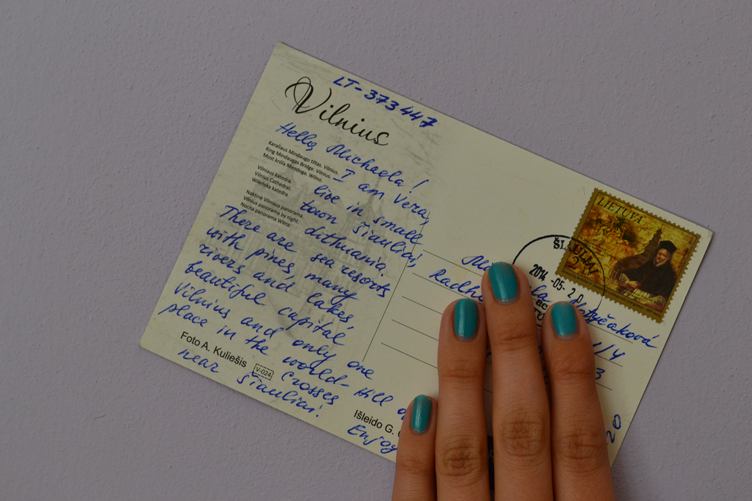 LT-373447
Vilnius
Karaliaus Mindaugo tiltas. Vilnius.
King Mindaugas Bridge. Vilnius.
Most króla Mendoga. Wilno.
Vilniaus katedra.
Vilnius Cathedral.
Wileńska katedra.
Naktinė Vilniaus panorama.
Vilnius panorama by night.
Nocna panorama Wilna.
Hello, Michaela!
I am Vera,
live in small
town Šiauliai,
Lithuania.
There are sea resorts
with pines, many
rivers and lakes,
beautiful capital
Vilnius and only one
place in the world - Hill of
Crosses
near Šiauliai!
Enjoy
Foto A. Kuliešis
V-024
Išleido G.
LIETUVA
2014-05-2
1/4
3
20